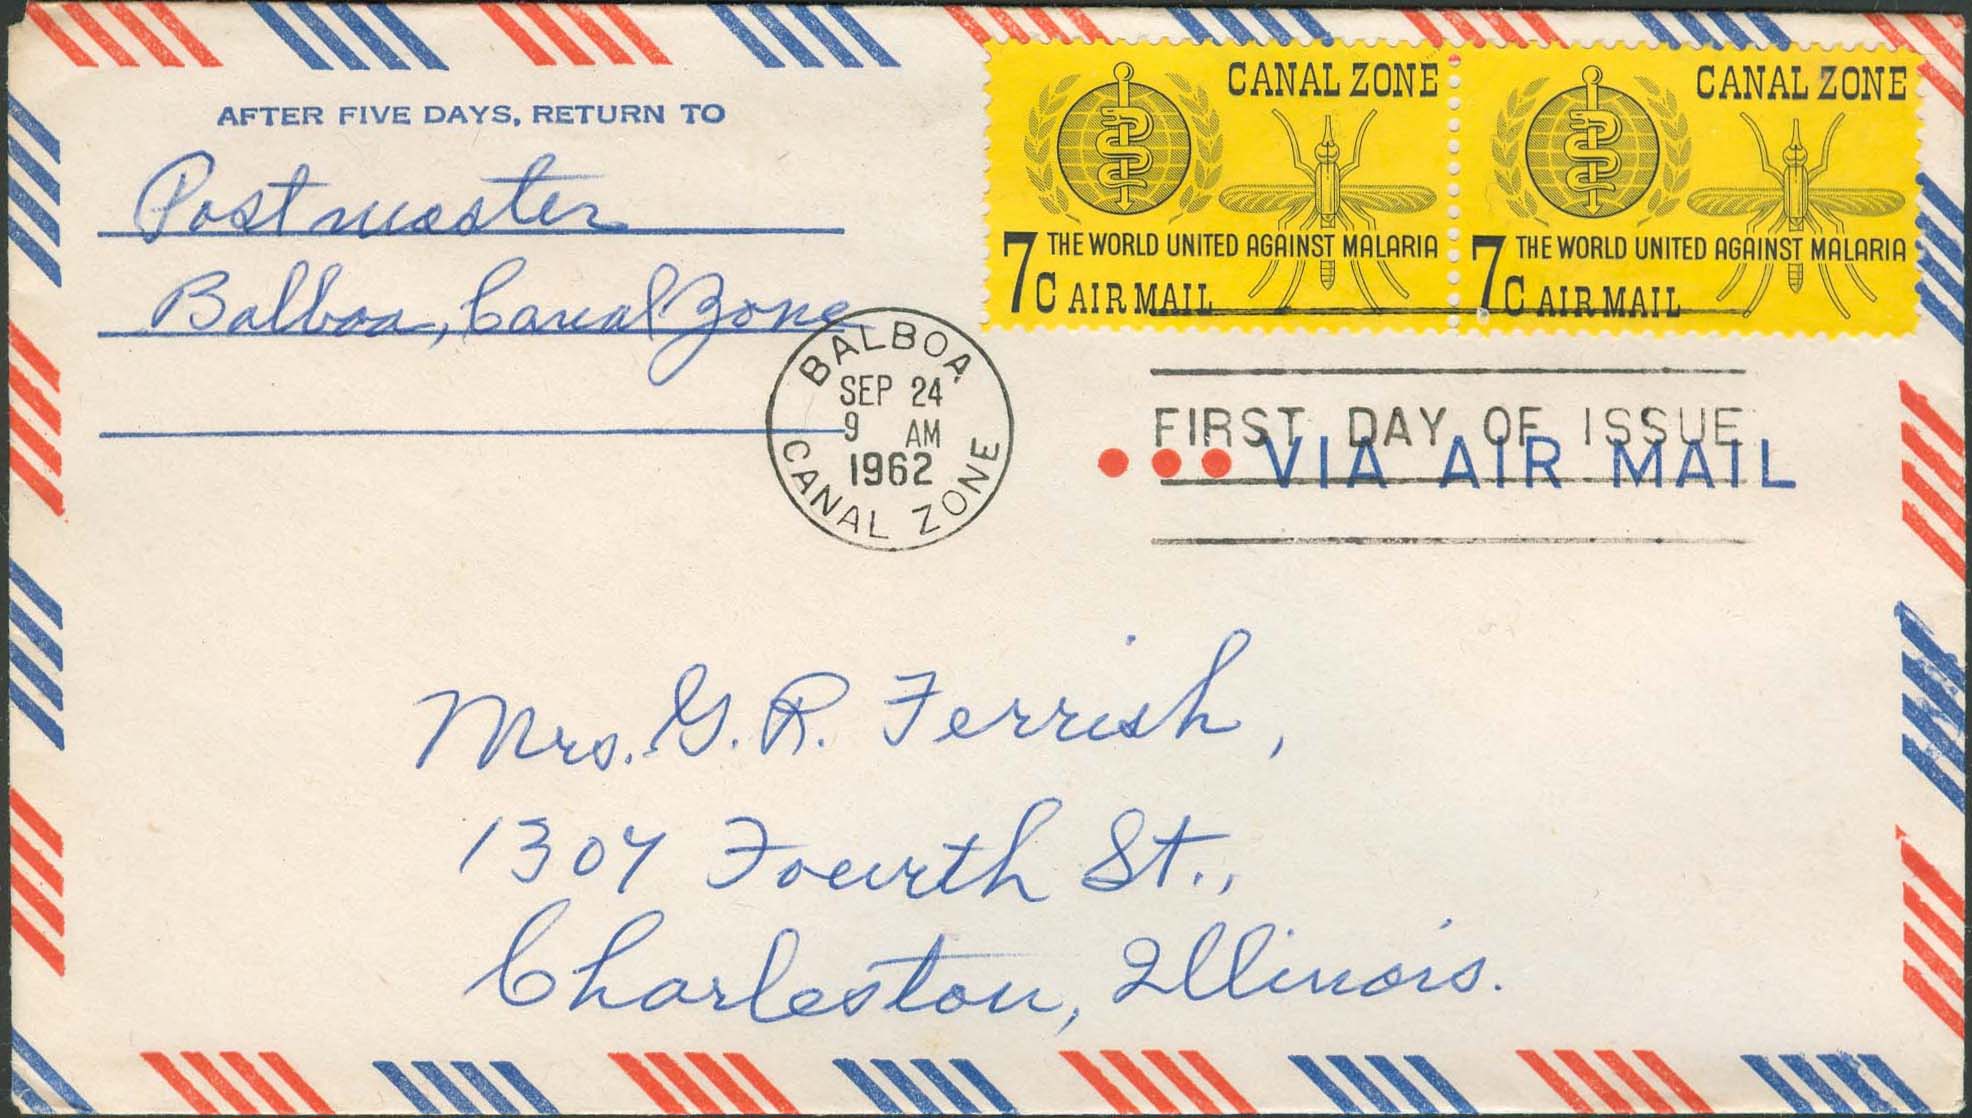 AFTER FIVE DAYS, RETURN TO
Postmaster
Balboa, Canal Zone
CANAL ZONE
THE WORLD UNITED AGAINST MALARIA
7c AIR MAIL
CANAL ZONE
THE WORLD UNITED AGAINST MALARIA
7c AIR MAIL
BALBOA
SEP 24
9 AM
1962
CANAL ZONE
FIRST DAY OF ISSUE
VIA AIR MAIL
Mrs. G. R. Ferrish,
1307 Fourth St.,
Charleston, Illinois.